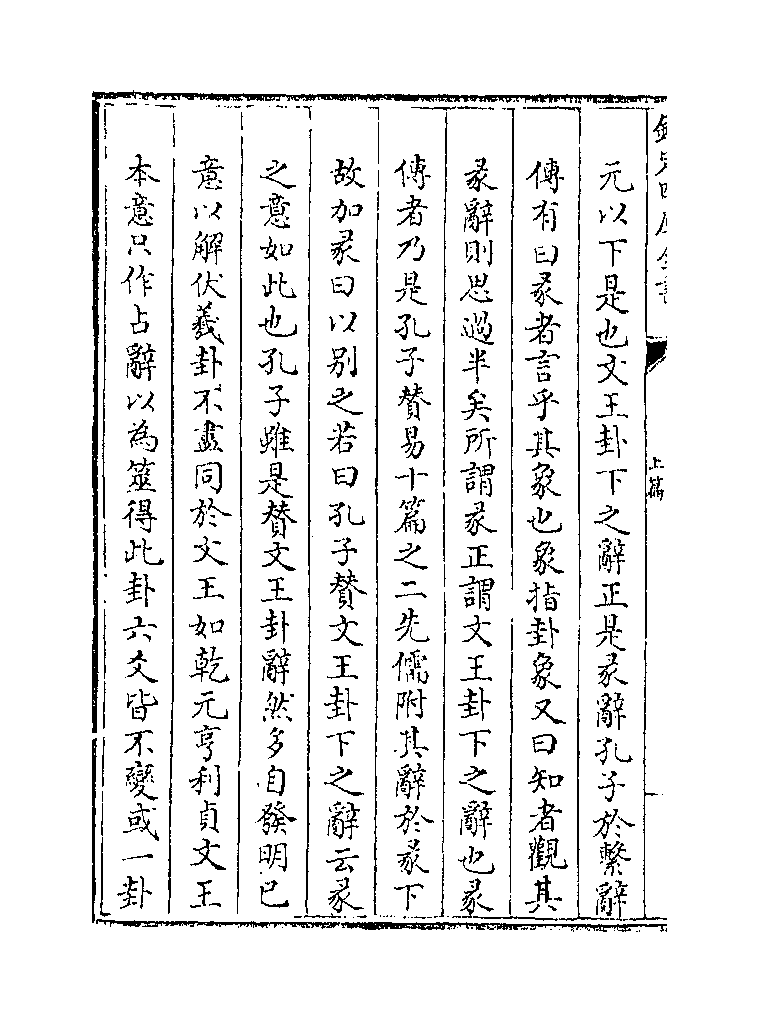 欽定四庫全書
上篇
元以下是也文王卦下之辭正是彖辭孔子於繫辭
傳有曰彖者言乎其象也象指卦象又曰知者觀其
彖辭則思過半矣所謂彖正謂文王卦下之辭也彖
傳者乃是孔子賛易十篇之二先儒附其辭於彖下
故加彖曰以别之若曰孔子賛文王卦下之辭云彖
之意如此也孔子雖是賛文王卦辭然多自發明已
意以解伏羲卦不盡同於文王如乾元亨利貞文王
本意只作占辭以為筮得此卦六爻皆不變或一卦